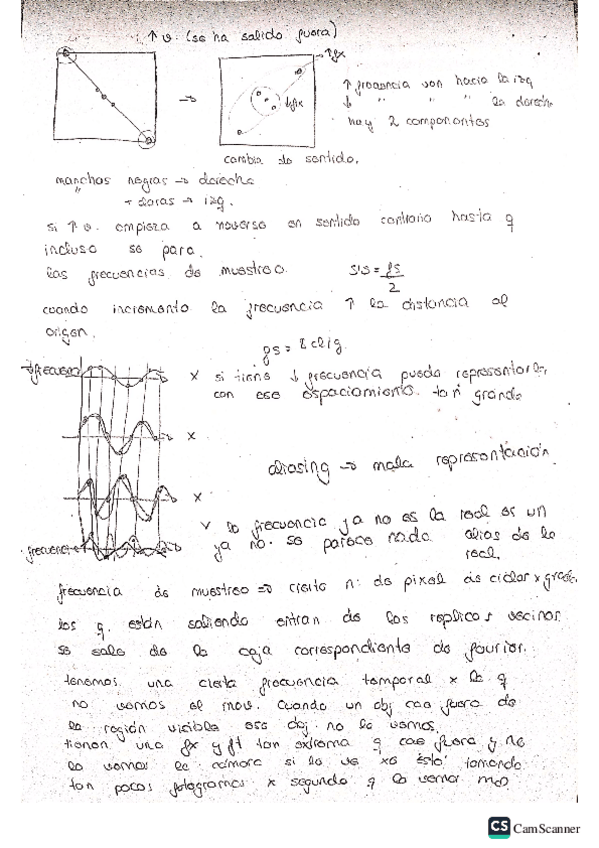 ↑ v. (se ha salido fuera)
→ ↑fx
↑ frecuencia van hacia la izq
↓ " " " la derecha
hay 2 componentes
cambia de sentido.
manchas negras → derecha
" claras → izq.
si ↑ v. empieza a moverse en sentido contrario hasta q
incluso se para.
las frecuencias de muestreo. = fs/2
cuando incremento la frecuencia ↑ la distancia al
origen.
fs = 8 cl/g.
↓frecuen x si tiene ↓ frecuencia puedo representarla
con ese espaciamiento tan grande
x
aliasing → mala representación
x
v la frecuencia ya no es la real es un
frecuenc ya no se parece nada alias de la
real.
frecuencia de muestreo → cierto n: de pixel de ciclos x grado.
los q están saliendo entran de las replicas vecinas
se sale de la caja correspondiente de fourier.
tenemos una cierta frecuencia temporal x la q
no vemos el mov. Cuando un obj cae fuera de
la región visible ese obj. no lo vemos.
tienen una fx y ft tan extrema q cae fuera y no
lo vemos la cámara si lo ve xo está tomando
tan pocos fotogramas x segundo q lo vemos mal
CS CamScanner